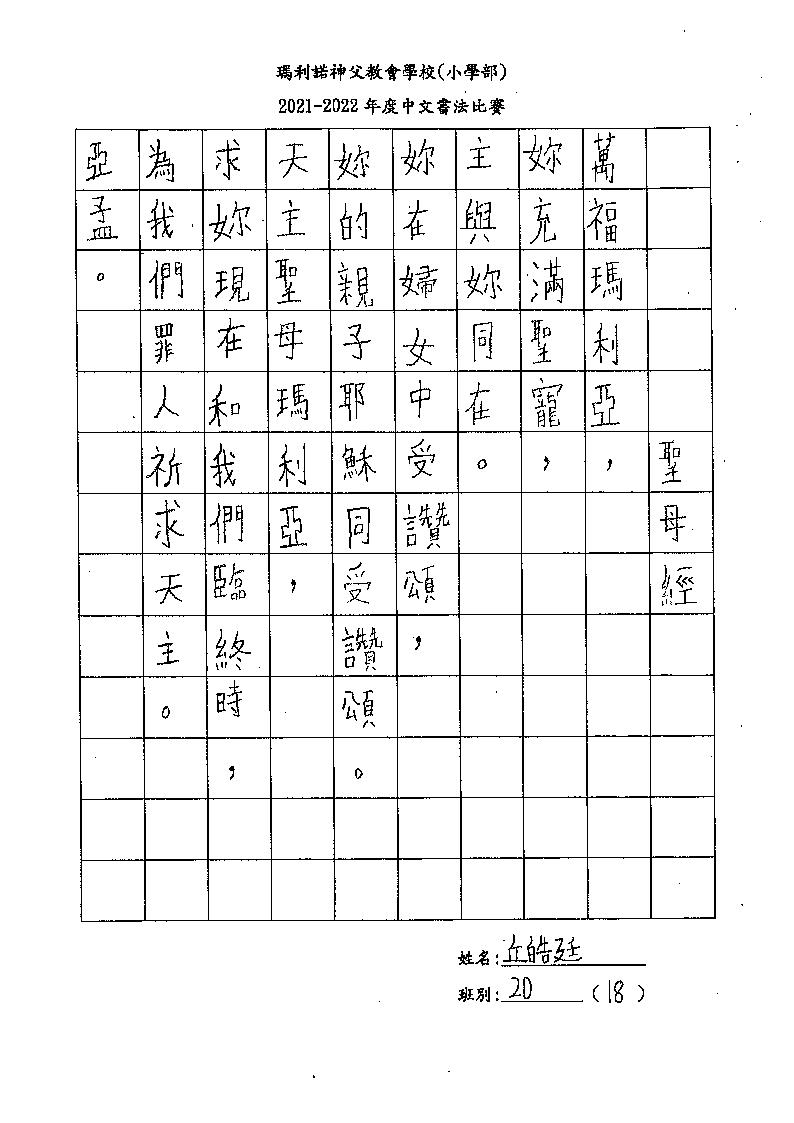 瑪利諾神父教會學校(小學部)
2021-2022年度中文書法比賽
聖母經
萬福瑪利亞，
妳充滿聖寵，
主與妳同在。
妳在婦女中受讚頌，
妳的親子耶穌同受讚頌。
天主聖母瑪利亞，
求妳現在和我們臨終時，
為我們罪人祈求天主。
亞孟。
姓名:丘皓廷
班別:2D(18)